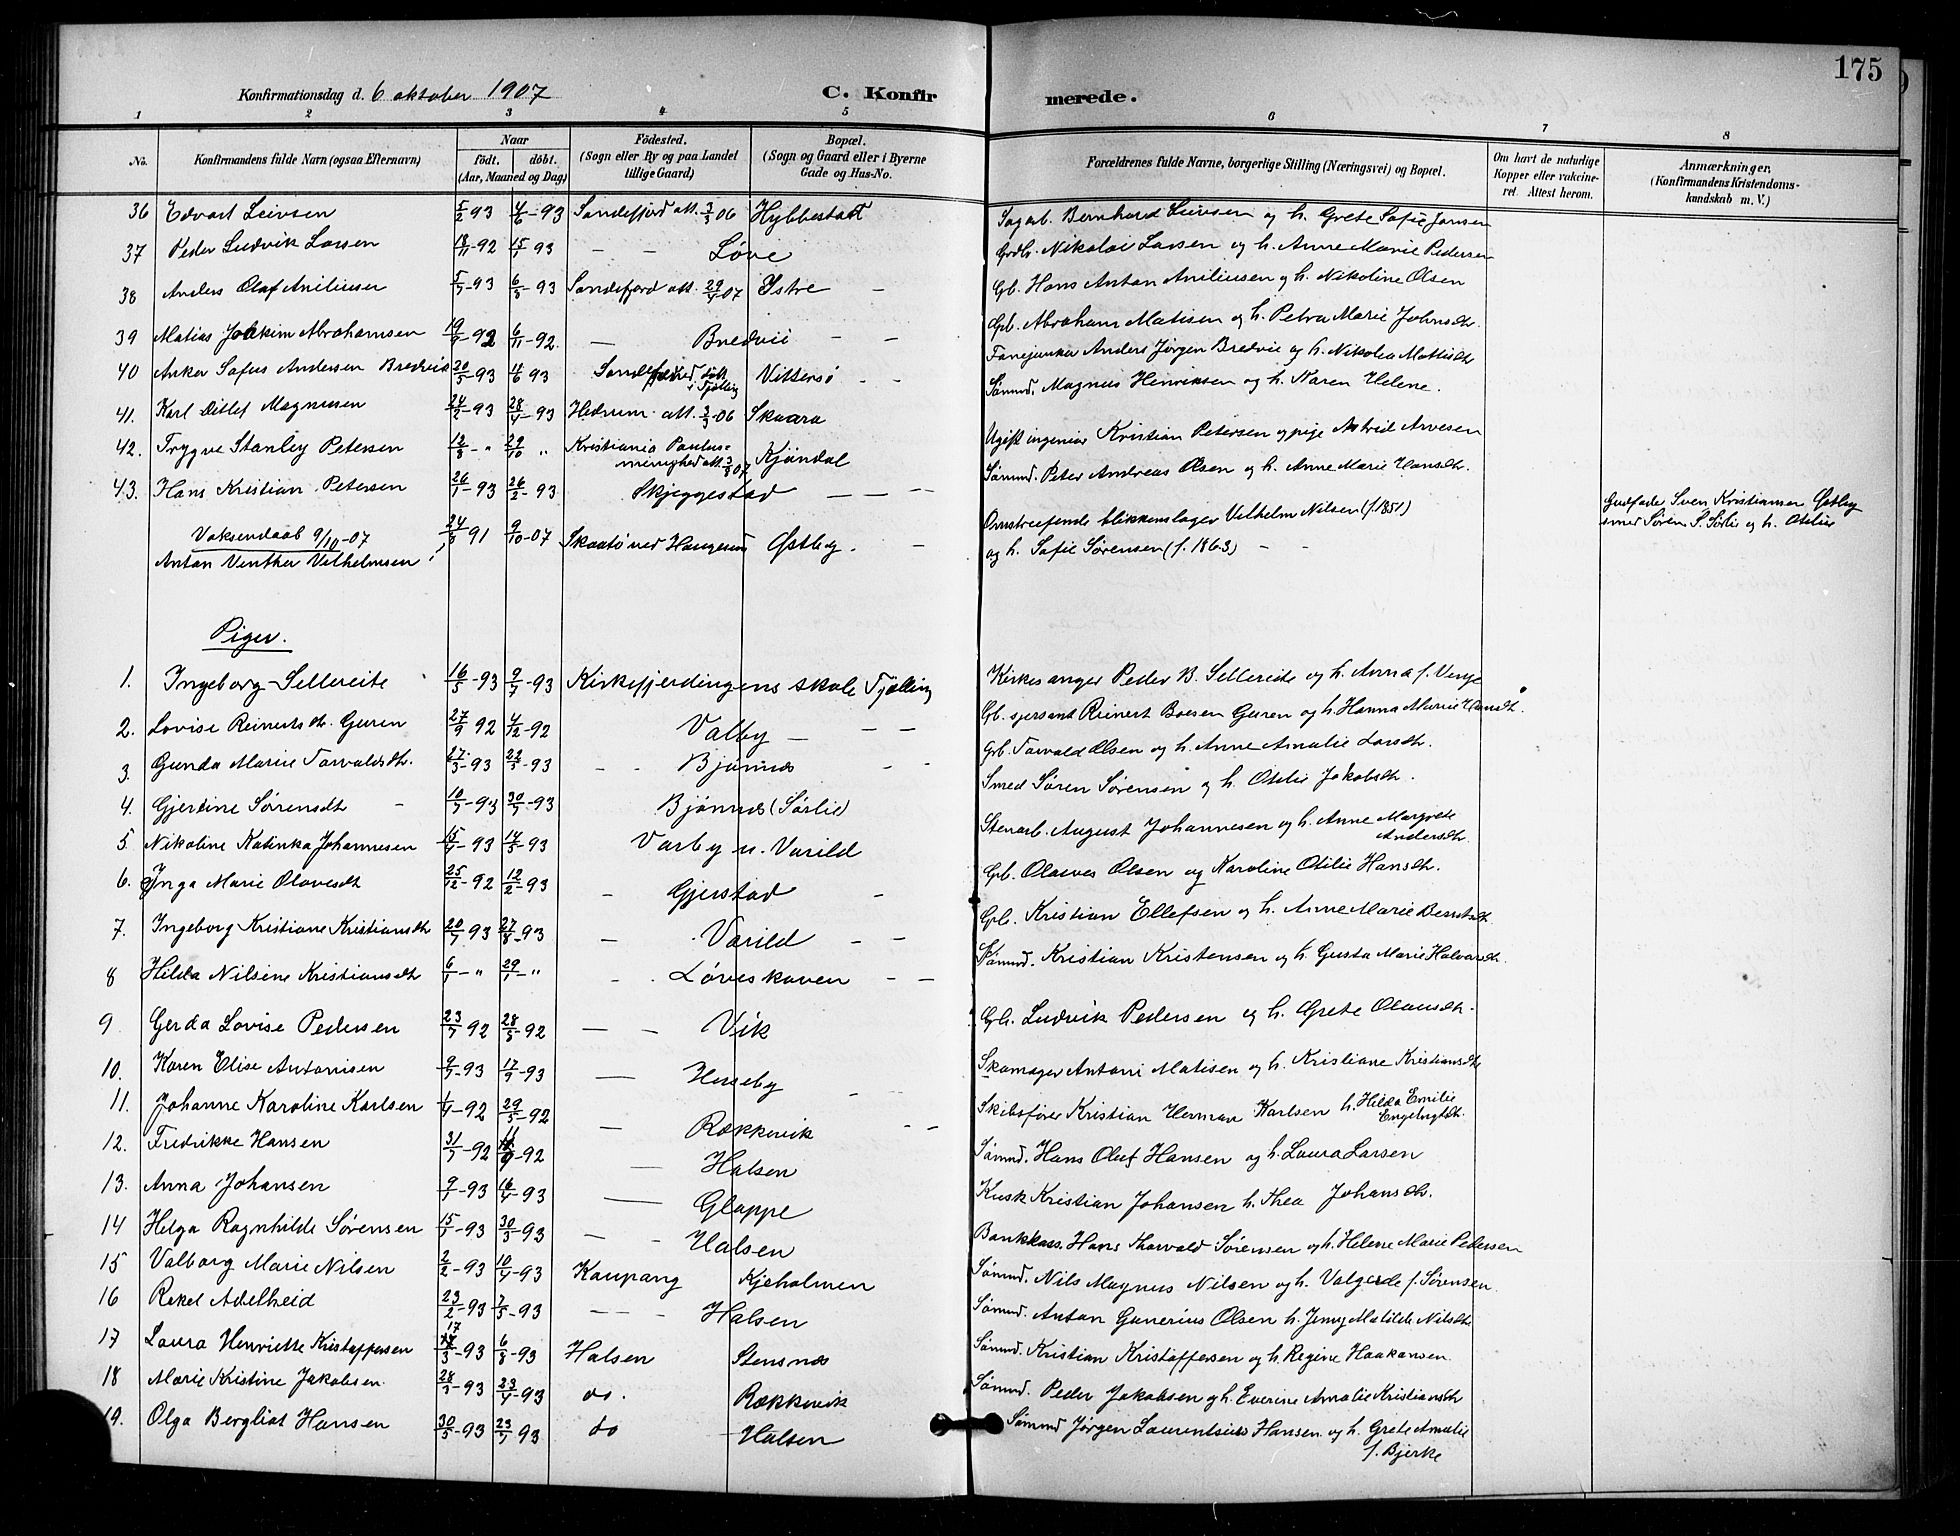 175
Konfirmationsdag d. 6 oktober 1907 C. Konfirmerede.
1 2 3 4 5 6 7 8
No. Konfirmandens fulde Navn (ogsaa Efternavn) Naar födt. döbt. (Aar, Maaned og Dag) Födested. (Sogn eller By og paa Landet tillige Gaard) Bopæl. (Sogn og Gaard eller i Byerne Gade og Hus-No. Forældrenes fulde Navne, borgerlige Stilling (Næringsvei) og Bopæl. Om havt de naturlige Kopper eller vakcineret. Attest herom. Anmærkninger. (Konfirmandens Kristendomskundskab m. V.)
36 Edvart Leivsen 5/2 93 4/6-93 Sandefjord att. 3/3 06 Hybbestatt Sagarb. Bernhard Leivsen og h. Grete Sofie Jansen
37 Peder Ludvik Larsen 18/11-92 15/1-93 - - Løve Grdbr. Nikolai Larsen og h. Anne Marie Pedersen
38 Anders Olaf Aniliusen 5/7-93 6/8 93 Sandefjord att. 29/4 07 Istre - Gb. Hans Anton Aniliusen og h. Nikoline Olsen
39 Matias Joakim Abrahamsen 19/9-92 6/11-92. - Bredvii - - Gb. Abraham Matisen og h. Petra Marie Johnsdt.
40 Anker Sofus Andersen Bredvik 20/5-93 4/6 93 Sandefjord, døbt i Tjølling Vittersø - - Fanejunker Anders Jørgen Bredvie og h. Nikolea Mattisdt
41. Karl Ditlef Magnusen 24/2-93 28/4-93 Hedrum att. 3/3-06 Skaara Sømnd. Magnus Henriksen og h. Karen Helene.
42. Trygve Stanley Petersen 12/8-" 29/10 " Kristiania Paulusmenighed att. 3/3 07 Kjøndal Ugift ingeniør Kristian Petersen og pige Astrid Arvesen
43. Hans Kristian Petersen 26/1-93 26/2-93 Skjeggestad - - - Sømnd. Peter Andreas Olsen og h. Anne Marie Hansdt.
Voksendaab 9/10-07 24/3 91 9/10-07 Skaatø ved Østby. - Omstreifende blikkenslager Vilhelm Nilsen (f. 1851) Gudfadr. Sven Kristiansen Østby
Anton Venther Vilhelmsen og h. Sofie Sørensen (f. 1863) - - smed Søren S. Sørlie og h. Otilie
Piger.
1. Ingeborg Sellereite 16/5-93 9/7-93 Kirkefjerdingens skole Tjølling Kirkesanger Peder B. Sellereite og h. Anna f. Venje
2. Lovise Reinertsdt. Guren 27/9 92 4/12-92 Valby - - - Gb. sjersant Reinert Boesen Guren og h. Hanna Marie Hansdt.
3. Gunda Marie Torvaldsdt. 27/3-93 22/5-93 - - Bjønnes - - Gb. Torvald Olsen og h. Anne Amalie Larsdt.
4. Gjertine Sørensdt - 10/7-93 30/7-93 Bjønnes (Sørlie) Smed Søren Sørensen og h. Otilie Jakobsdt.
5. Nikoline Katinka Johannesen 15/4-93 14/5-93 Varby u. Varild Stenarb. August Johannesen og h. Anne Margrete Andersdt.
6. Inga Marie Olavesdt 25/12-92 12/2-93 - Gjerstad - Gb. Olaves Olsen og Karoline Otilie Hansdt.
7. Ingeborg Kristiane Kristiansdt 20/7 93 27/8-93 - Varild - - Gb. Kristian Ellefsen og h. Anne Marie Berntsdt.
8 Hilda Nilsine Kristiansdt 6/1-" 29/1-" - Løveskaven - - Sømnd. Kristian Kristensen og h. Gusta Marie Halvorsdt.
9 Gerda Lovise Pedersen 23/7 92 28/8-92 - - Vik Gb. Ludvik Pedersen og h. Grete Olausdt.
10. Karen Elise Antonisen 9/7-93 17/9-93 - Hesseby - - Skomager Antoni Matisen og h. Kristiane Kristiansdt
11. Johanne Karoline Karlsen 1/4-92 29/5-92 - Rækkevik - - Skibsfører Kristian Herman Karlsen h. Hilda Emilie Engebrgtdt.
12. Fredrikke Hansen 31/7-92 11/9-92 - Halsen Sømnd. Hans Oluf Hansen og h. Laura Larsen
13. Anna Johansen 9/1-93 16/4-93 - Gloppe Kusk Kristian Johansen h. Thea Johansdt.
14 Helga Ragnhilde Sørensen 15/1-93 30/3-93 - - Halsen Bankkass. Hans Thorvald Sørensen og h. Helene Marie Pedersen
15 Valborg Marie Nilsen 2/2-93 10/4-93 Kaupang Kjeholmen Sømnd. Nils Magnus Nilsen og h. Valgerde f. Sørensen
16 Rakel Adelheid 23/2-93 7/5-93 - - Halsen Sømnd. Anton Gunerius Olsen h. Jenny Matilde Nilsdt
17 Laura Henriette Kristoffersen 17/3-93 6/8-93 Halsen Stensnes Sømnd. Kristian Kristoffersen og h. Regine Haakonsen.
18 Marie Kristine Jakobsen. 28/2-93 23/4-93 do. Rækkevik Sømnd. Peder Jakobsen og h. Everine Amalie Kristiansdt
19. Olga Bergliot Hansen 30/5-93 23/7 93 do - Halsen Sømnd Jørgen Laurentsius Hansen og h. Grete Amalie
f. Bjerke